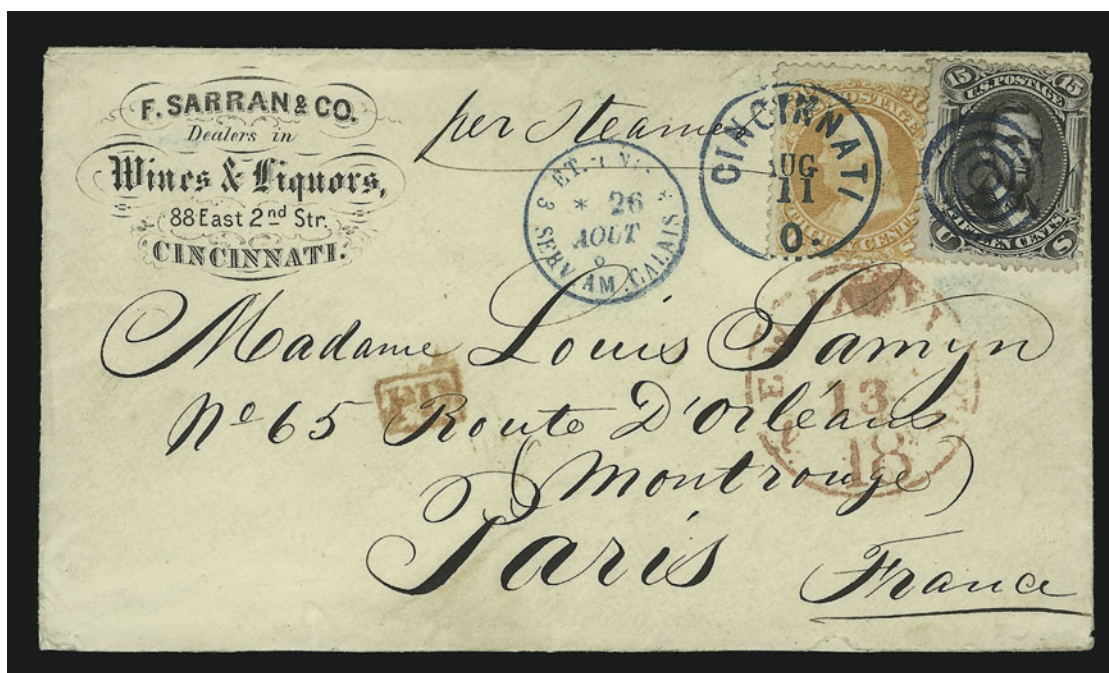 F. SARRAN & CO.
Dealers in
Wines & Liquors,
88 East 2nd Str.
CINCINNATI.
per Steamer
ET. 
3 SERV. AM. CALAIS
* 26
AOUT
CINCINNATI
AUG
11
O.
30
U.S. POSTAGE
THIRTY CENTS
15 15
U.S. POSTAGE
FIFTEEN CENTS
U S
NEW
13
18
PD
Madame Louis Samyn
No 65 Route D'Orléans
(Montrouge)
Paris
France